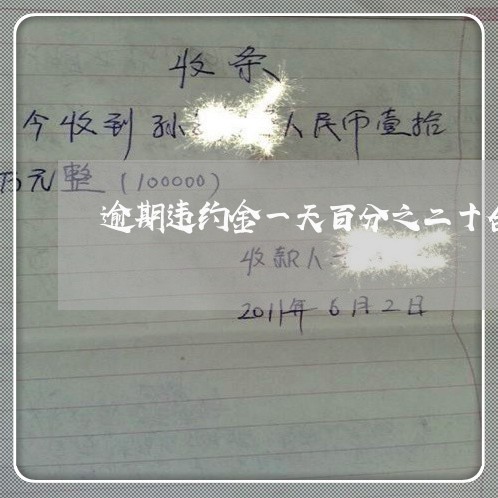 收条
今收到孙 人民币壹拾
万元整(100000)
逾期违约金一天百分之二十
收款人
2011年6月2日